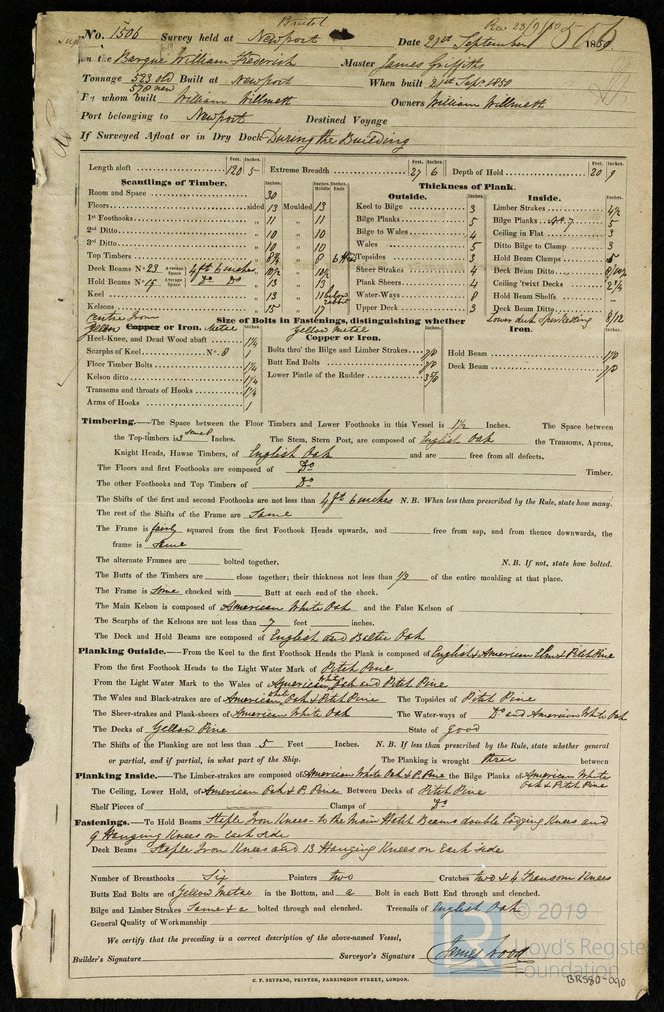 Bristol
Rec 23/9/50
No. 1506 Survey held at Newport Date 21st September 1850
on the Barque William Frederick Master James Griffiths
Tonnage 523 old Built at Newport When built 21st Sept 1850
578 new
By whom built William Willmett Owners William Willmett
Port belonging to Newport Destined Voyage
If Surveyed Afloat or in Dry Dock During the Building
Feet. Inches. Feet. Inches. Feet. Inches.
Length aloft 120 5 Extreme Breadth 27 6 Depth of Hold 20 9
Scantlings of Timber. Inches. Inches. Middle Inches. Ends
Room and Space 30
Floors sided 13 Moulded 13
1st Foothooks „ 11 „ 11
2nd Ditto „ 10 „ 10
3rd Ditto „ 10 „ 10
Top Timbers „ 8
Deck Beams No. 23 Average Space 4 ft 6 inches 10½ 10½
Hold Beams No. 15 Average Space Do Do 13 13
Keel 13 11 below
Kelsons 15 17
Thickness of Plank.
Outside. Inches.
Keel to Bilge 3
Bilge Planks 5
Bilge to Wales 4
Wales 5
Topsides 3
Sheer Strakes 4
Plank Sheers 4
Water-Ways 8
Upper Deck 3
Inside. Inches.
Limber Strakes 4½
Bilge Planks 5
Ceiling in Flat 3
Ditto Bilge to Clamp 3
Hold Beam Clamps 5
Deck Beam Ditto
Ceiling 'twixt Decks
Hold Beam Shelfs
Deck Beam Ditto
Lower deck Spirketting 8/12
Size of Bolts in Fastenings, distinguishing whether
Yellow Copper or Iron. Metal
Heel-Knee, and Dead Wood abaft 1¼
Scarphs of Keel No. 8 1
Floor Timber Bolts 1¼
Kelson ditto 1¼
Transoms and throats of Hooks 1¼
Arms of Hooks 1
Yellow Metal
Copper or Iron.
Bolts thro' the Bilge and Limber Strakes 7/8
Butt End Bolts
Lower Pintle of the Rudder
Iron.
Hold Beam
Deck Beam
Timbering.—The Space between the Floor Timbers and Lower Foothooks in this Vessel is 1½ Inches. The Space between
the Top-timbers is Inches. The Stem, Stern Post, are composed of English Oak the Transoms, Aprons,
Knight Heads, Hawse Timbers, of English Oak and are free from all defects.
The Floors and first Foothooks are composed of Do Timber.
The other Foothooks and Top Timbers of Do
The Shifts of the first and second Foothooks are not less than 4 ft 6 inches N.B. When less than prescribed by the Rule, state how many.
The rest of the Shifts of the Frame are Same
The Frame is fairly squared from the first Foothook Heads upwards, and free from sap, and from thence downwards, the
frame is Same
The alternate Frames are bolted together. N.B. If not, state how bolted.
The Butts of the Timbers are close together; their thickness not less than 1/3 of the entire moulding at that place.
The Frame is Some chocked with Butt at each end of the chock.
The Main Kelson is composed of American White Oak and the False Kelson of
The Scarphs of the Kelsons are not less than 7 feet inches.
The Deck and Hold Beams are composed of English and Baltic Oak
Planking Outside.—From the Keel to the first Foothook Heads the Plank is composed of English & American Elm & Pitch Pine
From the first Foothook Heads to the Light Water Mark of Pitch Pine
From the Light Water Mark to the Wales of American White Oak and Pitch Pine
The Wales and Black-strakes are of American White Oak & Pitch Pine The Topsides of Pitch Pine
The Sheer-strakes and Plank-sheers of American White Oak The Water-ways of Do and American White Oak
The Decks of Yellow Pine State of good
The Shifts of the Planking are not less than 5 Feet Inches. N.B. If less than prescribed by the Rule, state whether general
or partial, and if partial, in what part of the Ship. The Planking is wrought three between
Planking Inside.—The Limber-strakes are composed of American White Oak & P. Pine the Bilge Planks of American White
Oak & Pitch Pine
The Ceiling, Lower Hold, of American Oak & P. Pine Between Decks of Pitch Pine
Shelf Pieces of Clamps of Do
Fastenings.—To Hold Beams Staple Iron Knees - to the Main Hatch Beams double Lodging Knees and
9 Hanging Knees on Each side
Deck Beams Staple Iron Knees and 13 Hanging Knees on Each side
Number of Breasthooks Six Pointers two Crutches two & 4 Transom Knees
Butts End Bolts are of Yellow Metal in the Bottom, and a Bolt in each Butt End through and clenched.
Bilge and Limber Strakes Same & a bolted through and clenched. Treenails of English Oak
General Quality of Workmanship
We certify that the preceding is a correct description of the above-named Vessel,
Builder's Signature Surveyor's Signature James Wood
C. F. SEYFANG, PRINTER, FARRINGDON STREET, LONDON.
© 2019
Lloyd's Register
Foundation
BRS80-090